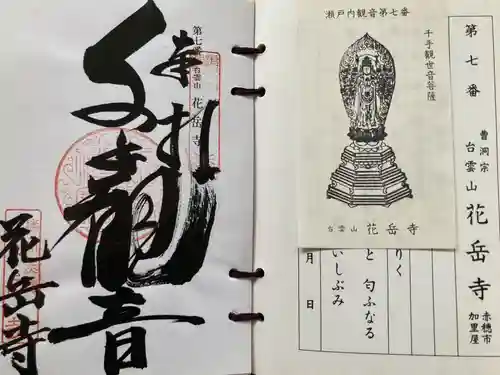 瀬戸内観音第七番
千手観世音菩薩
台雲山 花岳寺
第七番
曹洞宗
台雲山 花岳寺
赤穂市
加里屋
りく
と 匂ふなる
いしぶみ
月 日
第七番 台雲山 花岳寺
奉拝
千手観音
花岳寺